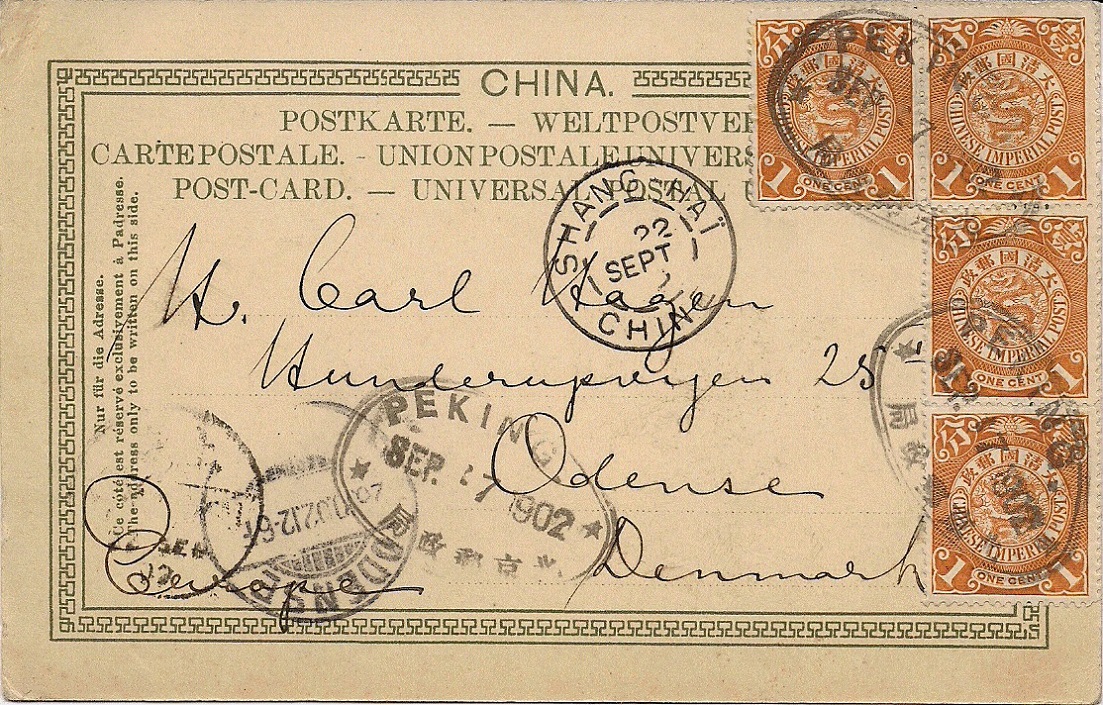 CHINA.
POSTKARTE. — WELTPOSTVER
CARTE POSTALE. - UNION POSTALE UNIVERS
POST-CARD. — UNIVERSAL POSTAL U
Nur für die Adresse.
Ce côté est réservé exclusivement à l'adresse.
The address only to be written on this side.
大清國郵政
壹分
CHINESE IMPERIAL POST
1 ONE CENT 1
大清國郵政
壹分
CHINESE IMPERIAL POST
1 ONE CENT 1
大清國郵政
壹分
CHINESE IMPERIAL POST
1 ONE CENT 1
大清國郵政
壹分
CHINESE IMPERIAL POST
1 ONE CENT 1
PEKING
SEP 7
局
SHANG-HAÏ
22
SEPT
CHINE
H. Carl Hagen
Hunderupvejen 25
Odense
Denmark
Europe
PEKING
SEP. 17 1902
北京郵政局
ODENSE
02.12-6
PEKING
SEP.
1902
局
SEP